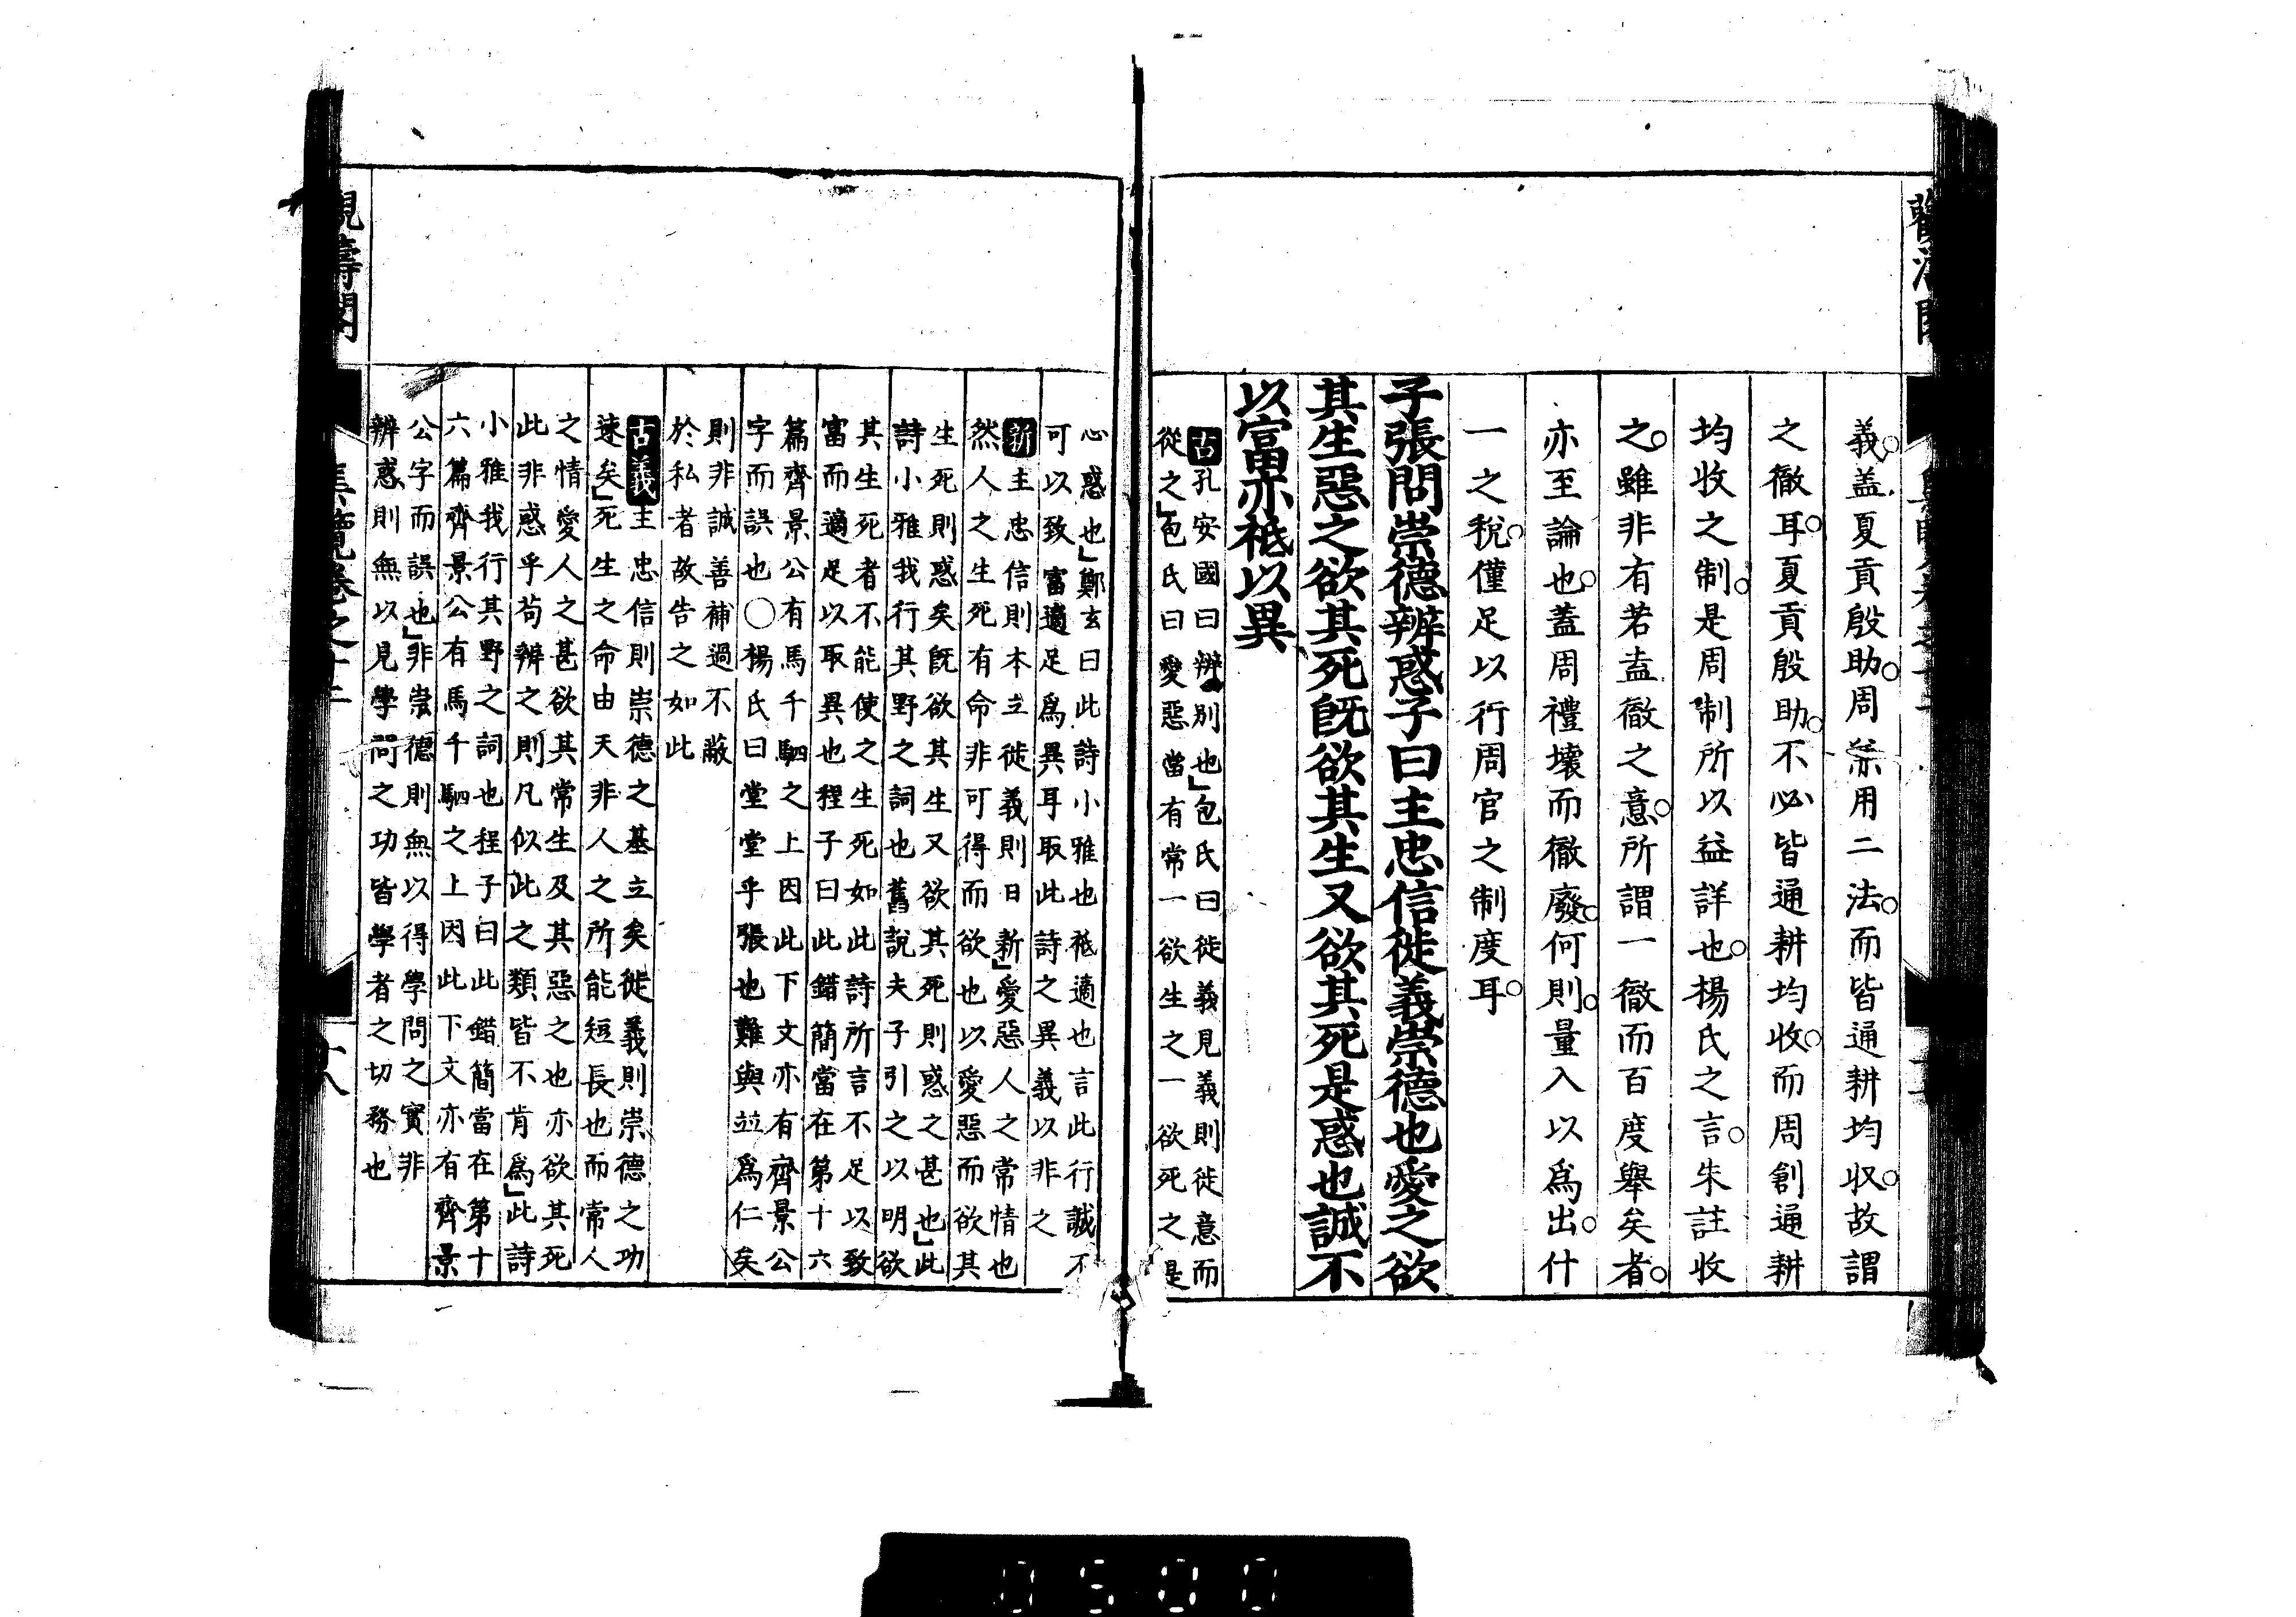 義盖夏貢殷助周兼用二法而皆通耕均収故謂
之徹耳夏貢殷助不必皆通耕均收而周創通耕
均收之制是周制所以益詳也楊氏之言朱註收
之雖非有若盍徹之意所謂一徹而百度舉矣者
亦至論也蓋周禮壞而徹廢何則量入以為出什
一之稅僅足以行周官之制度耳
子張問崇德辨惑子曰主忠信徙義崇德也愛之欲
其生惡之欲其死旣欲其生又欲其死是惑也誠不
以富亦祗以異
古孔安國曰辨別也」包氏曰徙義見義則徙意而
從之」包氏曰愛惡當有常一欲生之一欲死之是
心惑也」鄭玄曰此詩小雅也祗適也言此行誠不
可以致富適足爲異耳取此詩之異義以非之
新主忠信則本立徙義則日新」愛惡人之常情也
然人之生死有命非可得而欲也以愛惡而欲其
生死則惑矣旣欲其生又欲其死則惑之甚也」此
詩小雅我行其野之詞也舊說夫子引之以明欲
其生死者不能使之生死如此詩所言不足以致
富而適足以取異也程子曰此錯簡當在第十六
篇齊景公有馬千駟之上因此下文亦有齊景公
字而誤也○楊氏曰堂堂乎張也難與並爲仁矣
則非誠善補過不蔽
於私者故告之如此
古義主忠信則崇德之基立矣徙義則崇德之功
速矣」死生之命由天非人之所能短長也而常人
之情愛人之甚欲其常生及其惡之也亦欲其死
此非惑乎苟辨之則凡似此之類皆不肯爲」此詩
小雅我行其野之詞也程子曰此錯簡當在第十
六篇齊景公有馬千駟之上因此下文亦有齊景
公字而誤也」非崇德則無以得學問之實非
辨惑則無以見學問之功皆學者之切務也
集覽卷之十二
十八
觀濤閣